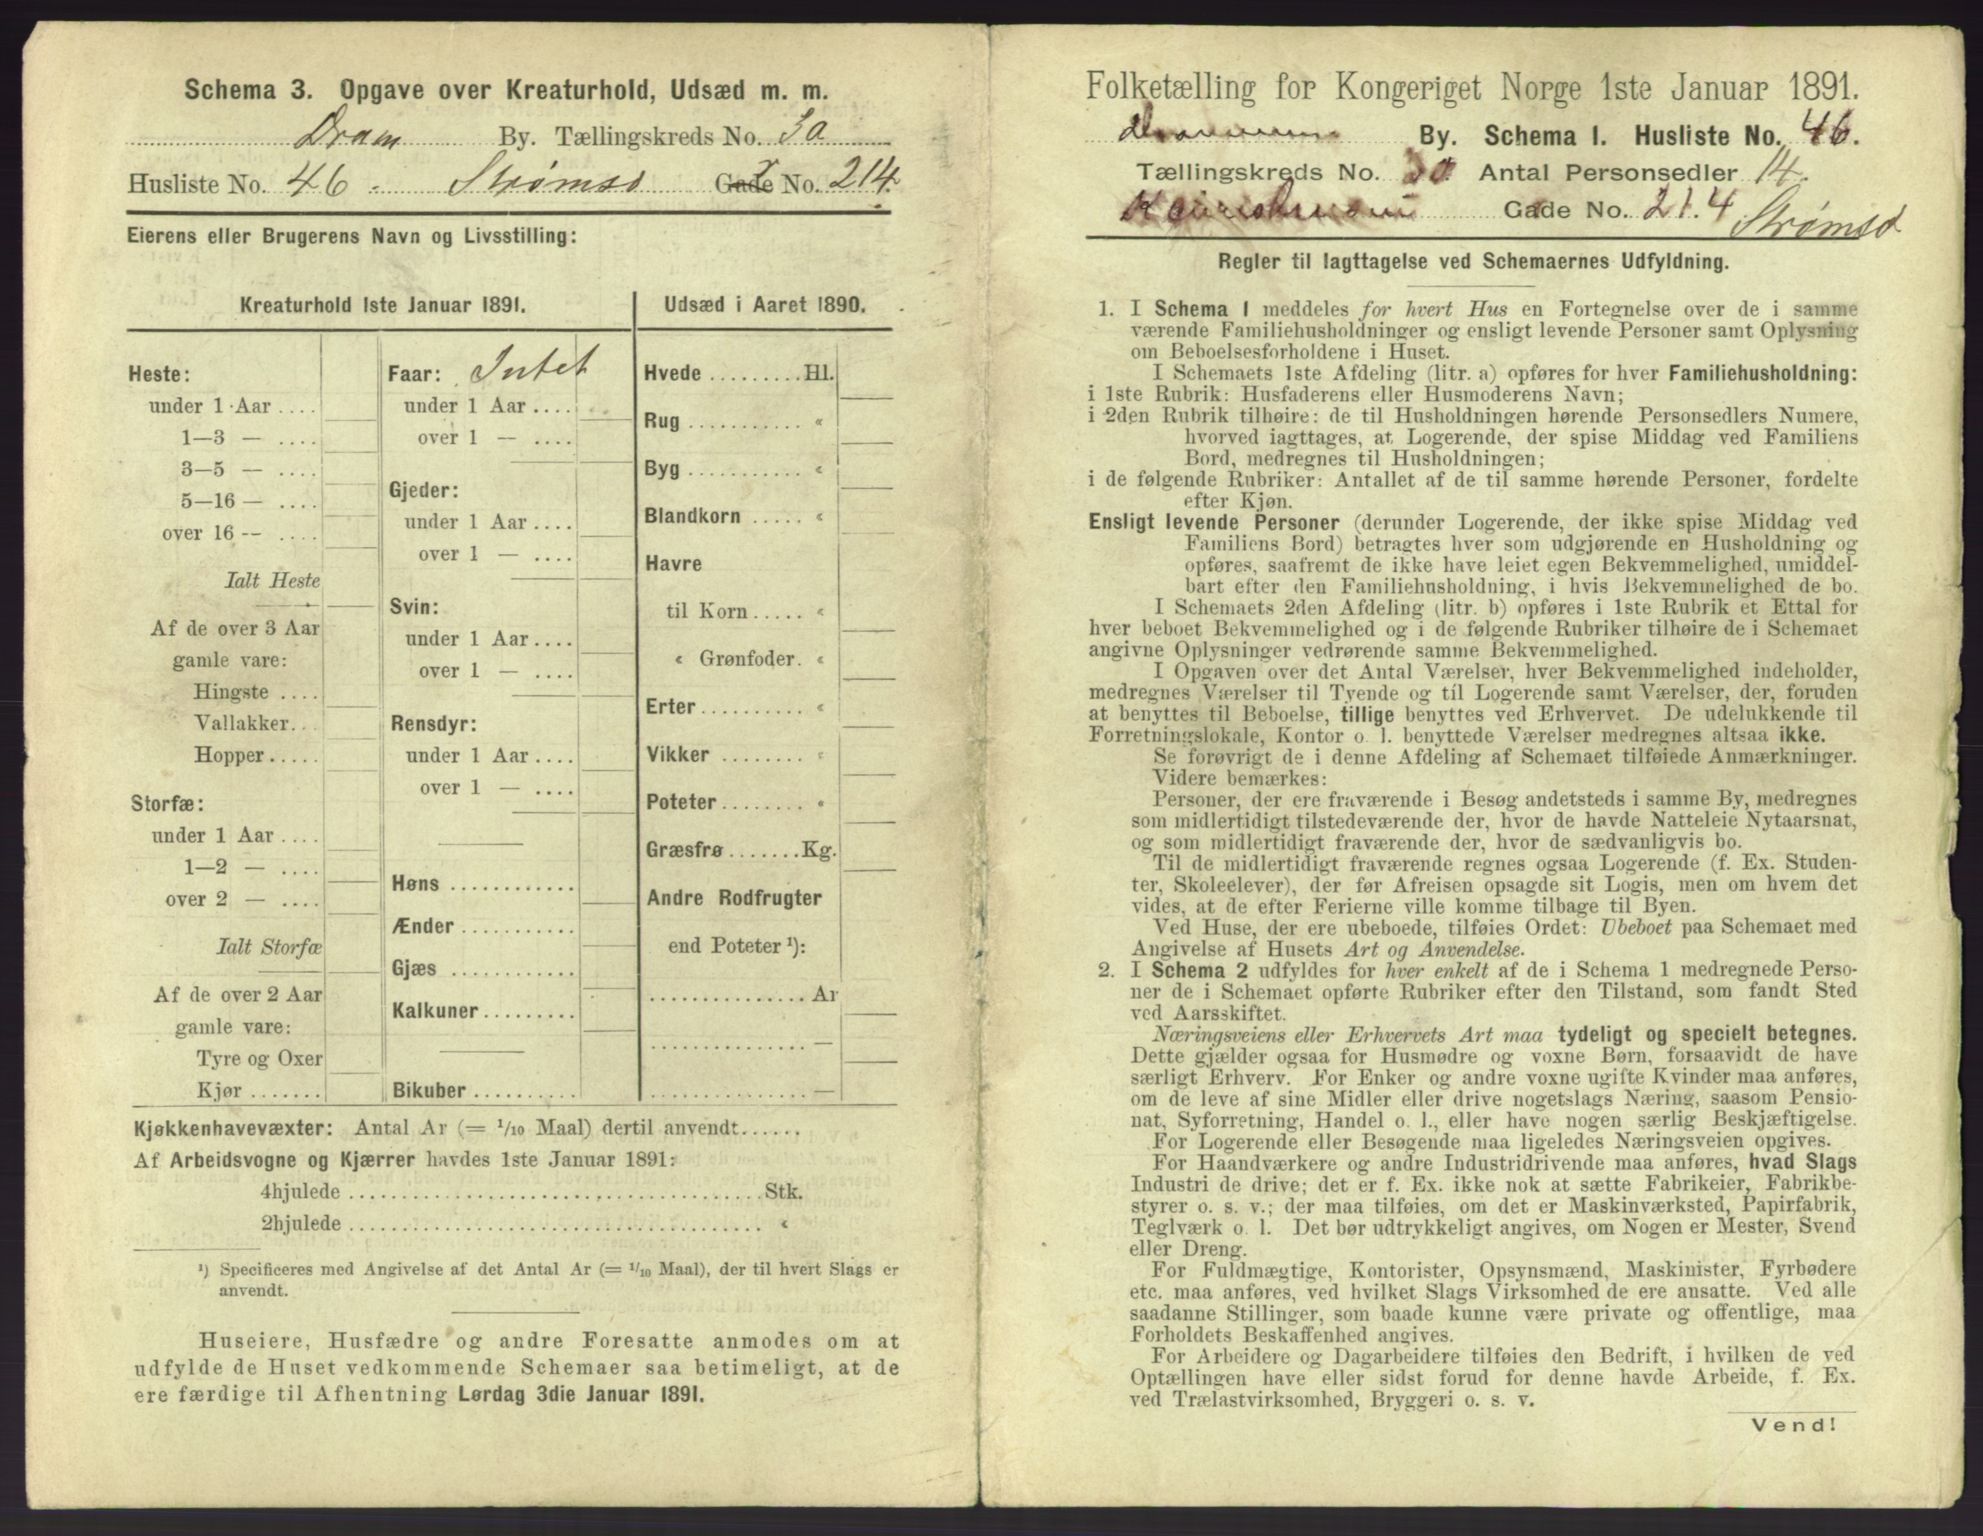 Schema 3. Opgave over Kreaturhold, Udsæd m. m.
Dram By. Tællingskreds No. 30
Husliste No. 46. Strømsø Gade No. 214.
Eierens eller Brugerens Navn og Livsstilling:
Kreaturhold 1ste Januar 1891.
Heste:
under 1 Aar ....
1—3 — ....
3—5 — ....
5—16 — ....
over 16 — ....
Ialt Heste
Af de over 3 Aar
gamle vare:
Hingste ....
Vallakker...
Hopper.....
Storfæ:
under 1 Aar ....
1—2 — ....
over 2 — ....
Ialt Storfæ
Af de over 2 Aar
gamle vare:
Tyre og Oxer
Kjør .......
Faar: Intet
under 1 Aar ....
over 1 — ....
Gjeder:
under 1 Aar ....
over 1 — ....
Svin:
under 1 Aar ....
over 1 — ....
Rensdyr:
under 1 Aar ....
over 1 — ....
Høns ............
Ænder ...........
Gjæs ............
Kalkuner .........
Bikuber ..........
Udsæd i Aaret 1890.
Hvede .........Hl.
Rug ........... «
Byg ........... «
Blandkorn ..... «
Havre
til Korn ..... «
« Grønfoder. «
Erter .......... «
Vikker ........ «
Poteter ........ «
Græsfrø .......Kg.
Andre Rodfrugter
end Poteter ¹):
...............Ar
............... —
............... —
Kjøkkenhavevæxter: Antal Ar (= 1/10 Maal) dertil anvendt......
Af Arbeidsvogne og Kjærrer havdes 1ste Januar 1891:
4hjulede ........................................Stk.
2hjulede ........................................ «
¹) Specificeres med Angivelse af det Antal Ar (= 1/10 Maal), der til hvert Slags er
anvendt.
Huseiere, Husfædre og andre Foresatte anmodes om at
udfylde de Huset vedkommende Schemaer saa betimeligt, at de
ere færdige til Afhentning Lørdag 3die Januar 1891.
Folketælling for Kongeriget Norge 1ste Januar 1891.
Drammens By. Schema 1. Husliste No. 46.
Tællingskreds No. 30 Antal Personsedler 14.
Gade No. 214 Strømsø
Regler til Iagttagelse ved Schemaernes Udfyldning.
1. I Schema 1 meddeles for hvert Hus en Fortegnelse over de i samme
værende Familiehusholdninger og ensligt levende Personer samt Oplysning
om Beboelsesforholdene i Huset.
I Schemaets 1ste Afdeling (litr. a) opføres for hver Familiehusholdning:
i 1ste Rubrik: Husfaderens eller Husmoderens Navn;
i 2den Rubrik tilhøire: de til Husholdningen hørende Personsedlers Numere,
hvorved iagttages, at Logerende, der spise Middag ved Familiens
Bord, medregnes til Husholdningen;
i de følgende Rubriker: Antallet af de til samme hørende Personer, fordelte
efter Kjøn.
Ensligt levende Personer (derunder Logerende, der ikke spise Middag ved
Familiens Bord) betragtes hver som udgjørende en Husholdning og
opføres, saafremt de ikke have leiet egen Bekvemmelighed, umiddel-
bart efter den Familiehusholdning, i hvis Bekvemmelighed de bo.
I Schemaets 2den Afdeling (litr. b) opføres i 1ste Rubrik et Ettal for
hver beboet Bekvemmelighed og i de følgende Rubriker tilhøire de i Schemaet
angivne Oplysninger vedrørende samme Bekvemmelighed.
I Opgaven over det Antal Værelser, hver Bekvemmelighed indeholder,
medregnes Værelser til Tyende og til Logerende samt Værelser, der, foruden
at benyttes til Beboelse, tillige benyttes ved Erhvervet. De udelukkende til
Forretningslokale, Kontor o. l. benyttede Værelser medregnes altsaa ikke.
Se forøvrigt de i denne Afdeling af Schemaet tilføiede Anmærkninger.
Videre bemærkes:
Personer, der ere fraværende i Besøg andetsteds i samme By, medregnes
som midlertidigt tilstedeværende der, hvor de havde Natteleie Nytaarsnat,
og som midlertidigt fraværende der, hvor de sædvanligvis bo.
Til de midlertidigt fraværende regnes ogsaa Logerende (f. Ex. Studen-
ter, Skoleelever), der før Afreisen opsagde sit Logis, men om hvem det
vides, at de efter Ferierne ville komme tilbage til Byen.
Ved Huse, der ere ubeboede, tilføies Ordet: Ubeboet paa Schemaet med
Angivelse af Husets Art og Anvendelse.
2. I Schema 2 udfyldes for hver enkelt af de i Schema 1 medregnede Perso-
ner de i Schemaet opførte Rubriker efter den Tilstand, som fandt Sted
ved Aarsskiftet.
Næringsveiens eller Erhvervets Art maa tydeligt og specielt betegnes.
Dette gjælder ogsaa for Husmødre og voxne Børn, forsaavidt de have
særligt Erhverv. For Enker og andre voxne ugifte Kvinder maa anføres,
om de leve af sine Midler eller drive nogetslags Næring, saasom Pensio-
nat, Syforretning, Handel o. l., eller have nogen særlig Beskjæftigelse.
For Logerende eller Besøgende maa ligeledes Næringsveien opgives.
For Haandværkere og andre Industridrivende maa anføres, hvad Slags
Industri de drive; det er f. Ex. ikke nok at sætte Fabrikeier, Fabrikbe-
styrer o. s. v.; der maa tilføies, om det er Maskinværksted, Papirfabrik,
Teglværk o. l. Det bør udtrykkeligt angives, om Nogen er Mester, Svend
eller Dreng.
For Fuldmægtige, Kontorister, Opsynsmænd, Maskinister, Fyrbødere
etc. maa anføres, ved hvilket Slags Virksomhed de ere ansatte. Ved alle
saadanne Stillinger, som baade kunne være private og offentlige, maa
Forholdets Beskaffenhed angives.
For Arbeidere og Dagarbeidere tilføies den Bedrift, i hvilken de ved
Optællingen have eller sidst forud for denne havde Arbeide, f. Ex.
ved Trælastvirksomhed, Bryggeri o. s. v.
Vend!